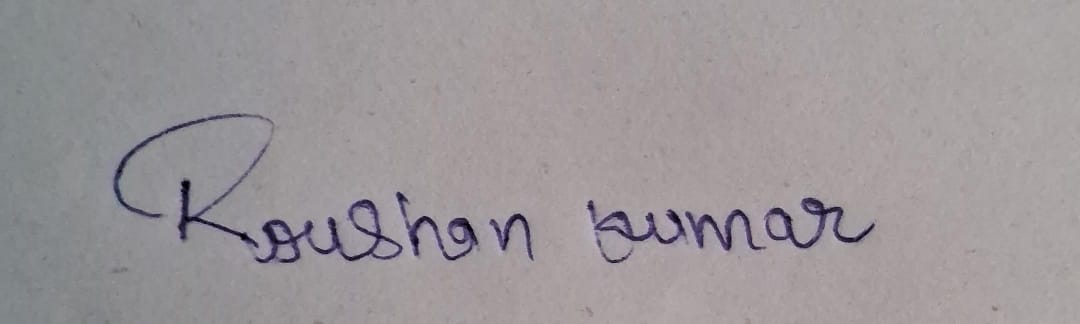 Roushan kumar